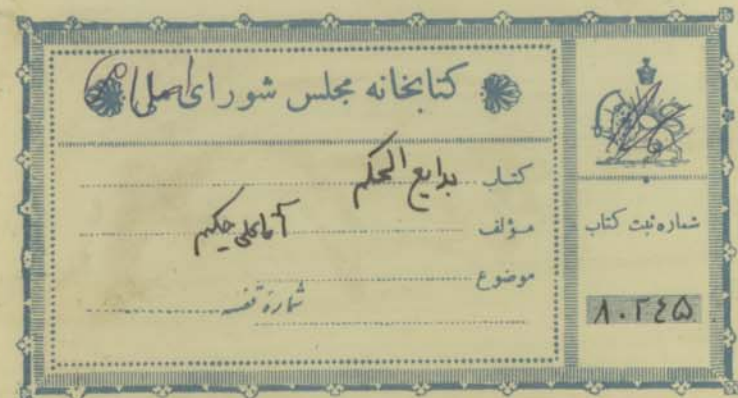 کتابخانه مجلس شورای اسلامی
کتاب بدایع الحکم
مؤلف آقاعلی حکیم
موضوع
شمارهٔ قفسه
شماره ثبت کتاب
۸۰۲٤۵